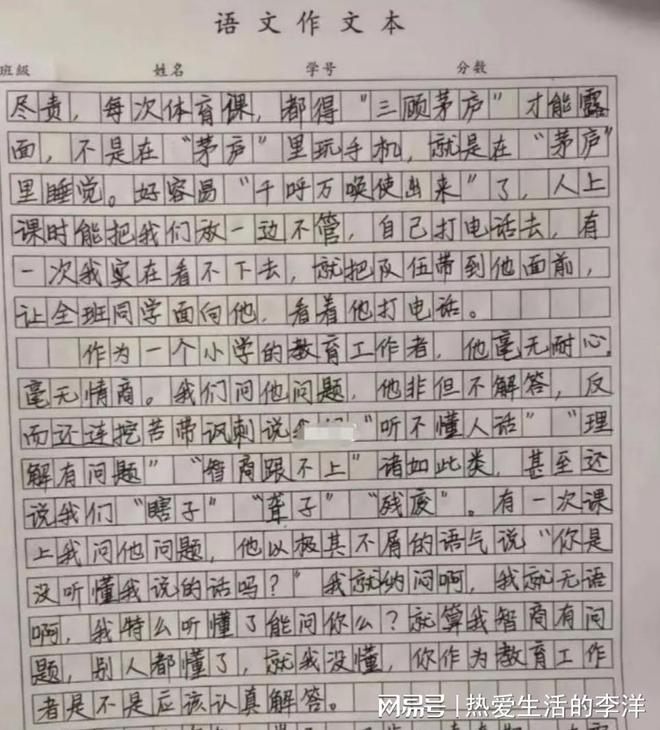 语文作文本
班级 姓名 学号 分数
尽责，每次体育课，都得“三顾茅庐”才能露
面，不是在“茅庐”里玩手机，就是在“茅庐”
里睡觉。好容易“千呼万唤使出来”了，人上
课时能把我们放一边不管，自己打电话去，有
一次我实在看不下去，就把队伍带到他面前，
让全班同学面向他，看着他打电话。
作为一个小学的教育工作者，他毫无耐心，
毫无情商。我们问他问题，他非但不解答，反
而还连挖苦带讽刺说 “听不懂人话”“理
解有问题”“智商跟不上”诸如此类，甚至还
说我们“瞎子”“聋子”“残废”。有一次课
上我问他问题，他以极其不屑的语气说“你是
没听懂我说的话吗？”我就纳闷啊，我就无语
啊，我特么听懂了能问你么？就算我智商有问
题，别人都懂了，就我没懂，你作为教育工作
者是不是应该认真解答。
网易号 | 热爱生活的李洋